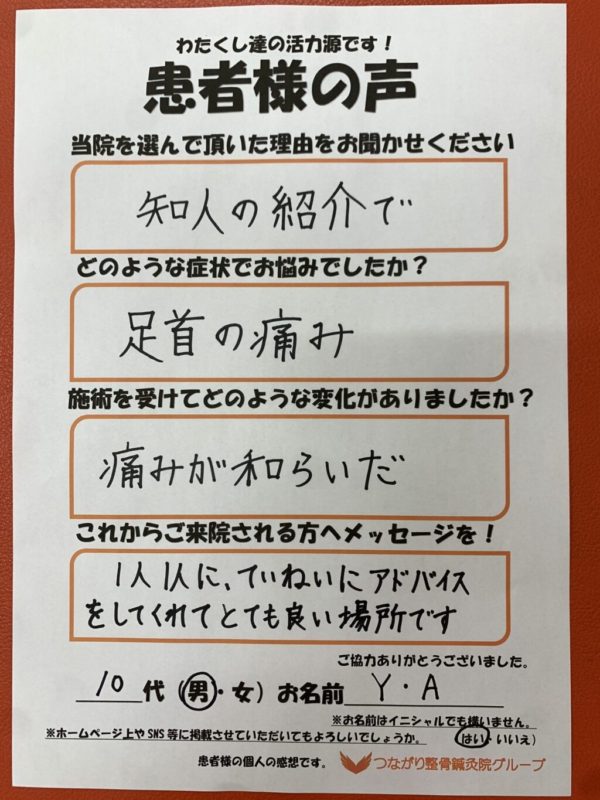 わたくし達の活力源です！
患者様の声
当院を選んで頂いた理由をお聞かせください
知人の紹介で
どのような症状でお悩みでしたか？
足首の痛み
施術を受けてどのような変化がありましたか？
痛みが和らいだ
これからご来院される方へメッセージを！
1人1人に、ていねいにアドバイス
をしてくれてとても良い場所です
ご協力ありがとうございました。
10代（男・女）お名前 Y・A
※お名前はイニシャルでも構いません。
※ホームページ上やSNS等に掲載させていただいてもよろしいでしょうか。（はい・いいえ）
患者様の個人の感想です。 つながり整骨鍼灸院グループ